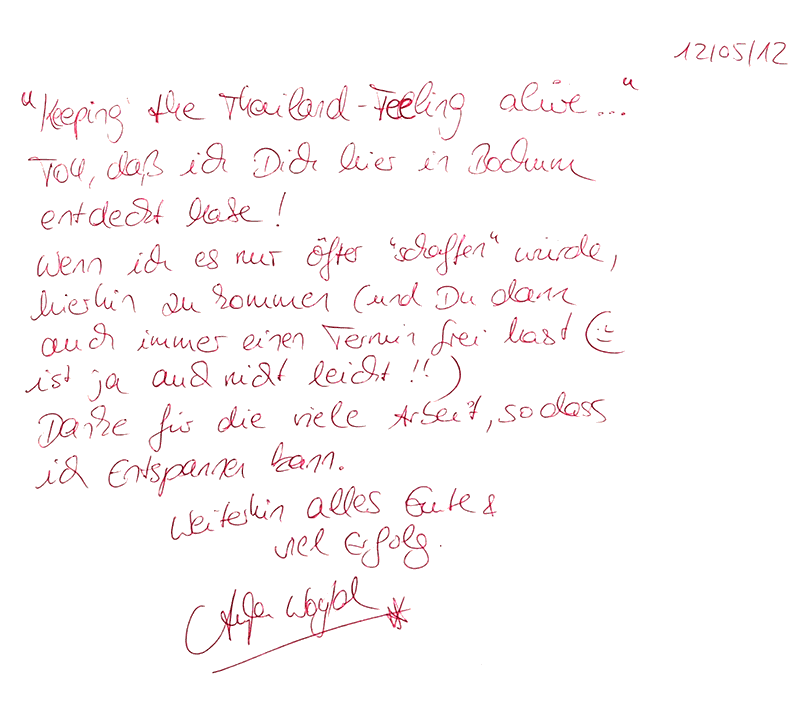 12/05/12
"Keeping the Thailand-Feeling alive..."
Toll, daß ich Dich hier in Bochum
entdeckt habe!
Wenn ich es nur öfter "schaffen" würde,
hierhin zu kommen (und Du dann
auch immer einen Termin frei hast (☺
ist ja auch nicht leicht!!)
Danke für die viele Arbeit, so dass
ich Entspannen kann.
Weiterhin alles Gute &
viel Erfolg.